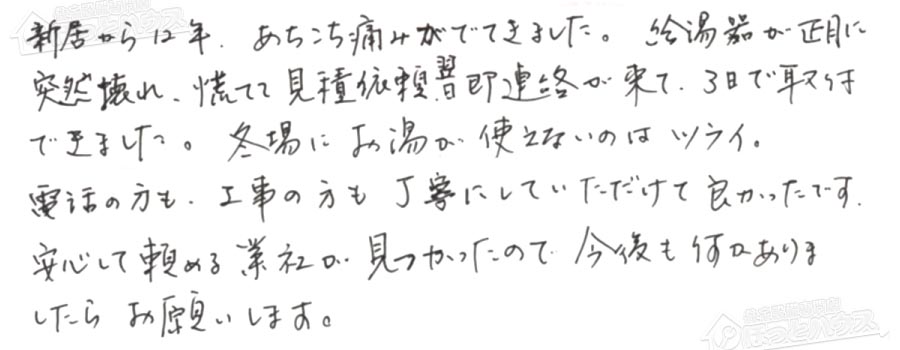 新居から12年、あちこち痛みがでてきました。給湯器が正月に
突然壊れ、慌てて見積依頼翌即連絡が来て、3日で取付
できました。冬場にお湯が使えないのはツライ。
電話の方も、工事の方も丁寧にしていただけて良かったです。
安心して頼める業社が見つかったので今後も何かありま
したらお願いします。
ほっとハウス